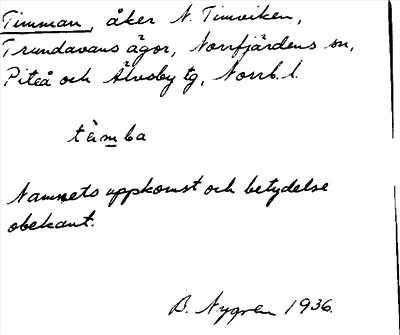 Timman, åker N. Timviken,
Trundavans ägor, Norrfjärdens sn,
Piteå och Älvsby tg, Norrb. l.
tèmba
Namnets uppkomst och betydelse
obekant.
B. Nygren 1936.